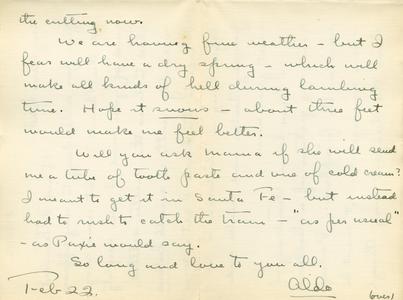 the cutting now.
We are having fine weather - but I
fear will have a dry spring - which will
make all kinds of hell during lambing
time. Hope it snows - about three feet
would make me feel better.
Will you ask mama if she will send
me a tube of tooth paste and one of cold cream?
I meant to get it in Santa Fe - but instead
had to rush to catch the train - "as per usual"
- as Paxie would say.
So long and love to you all.
Feb 22. Aldo
(over)